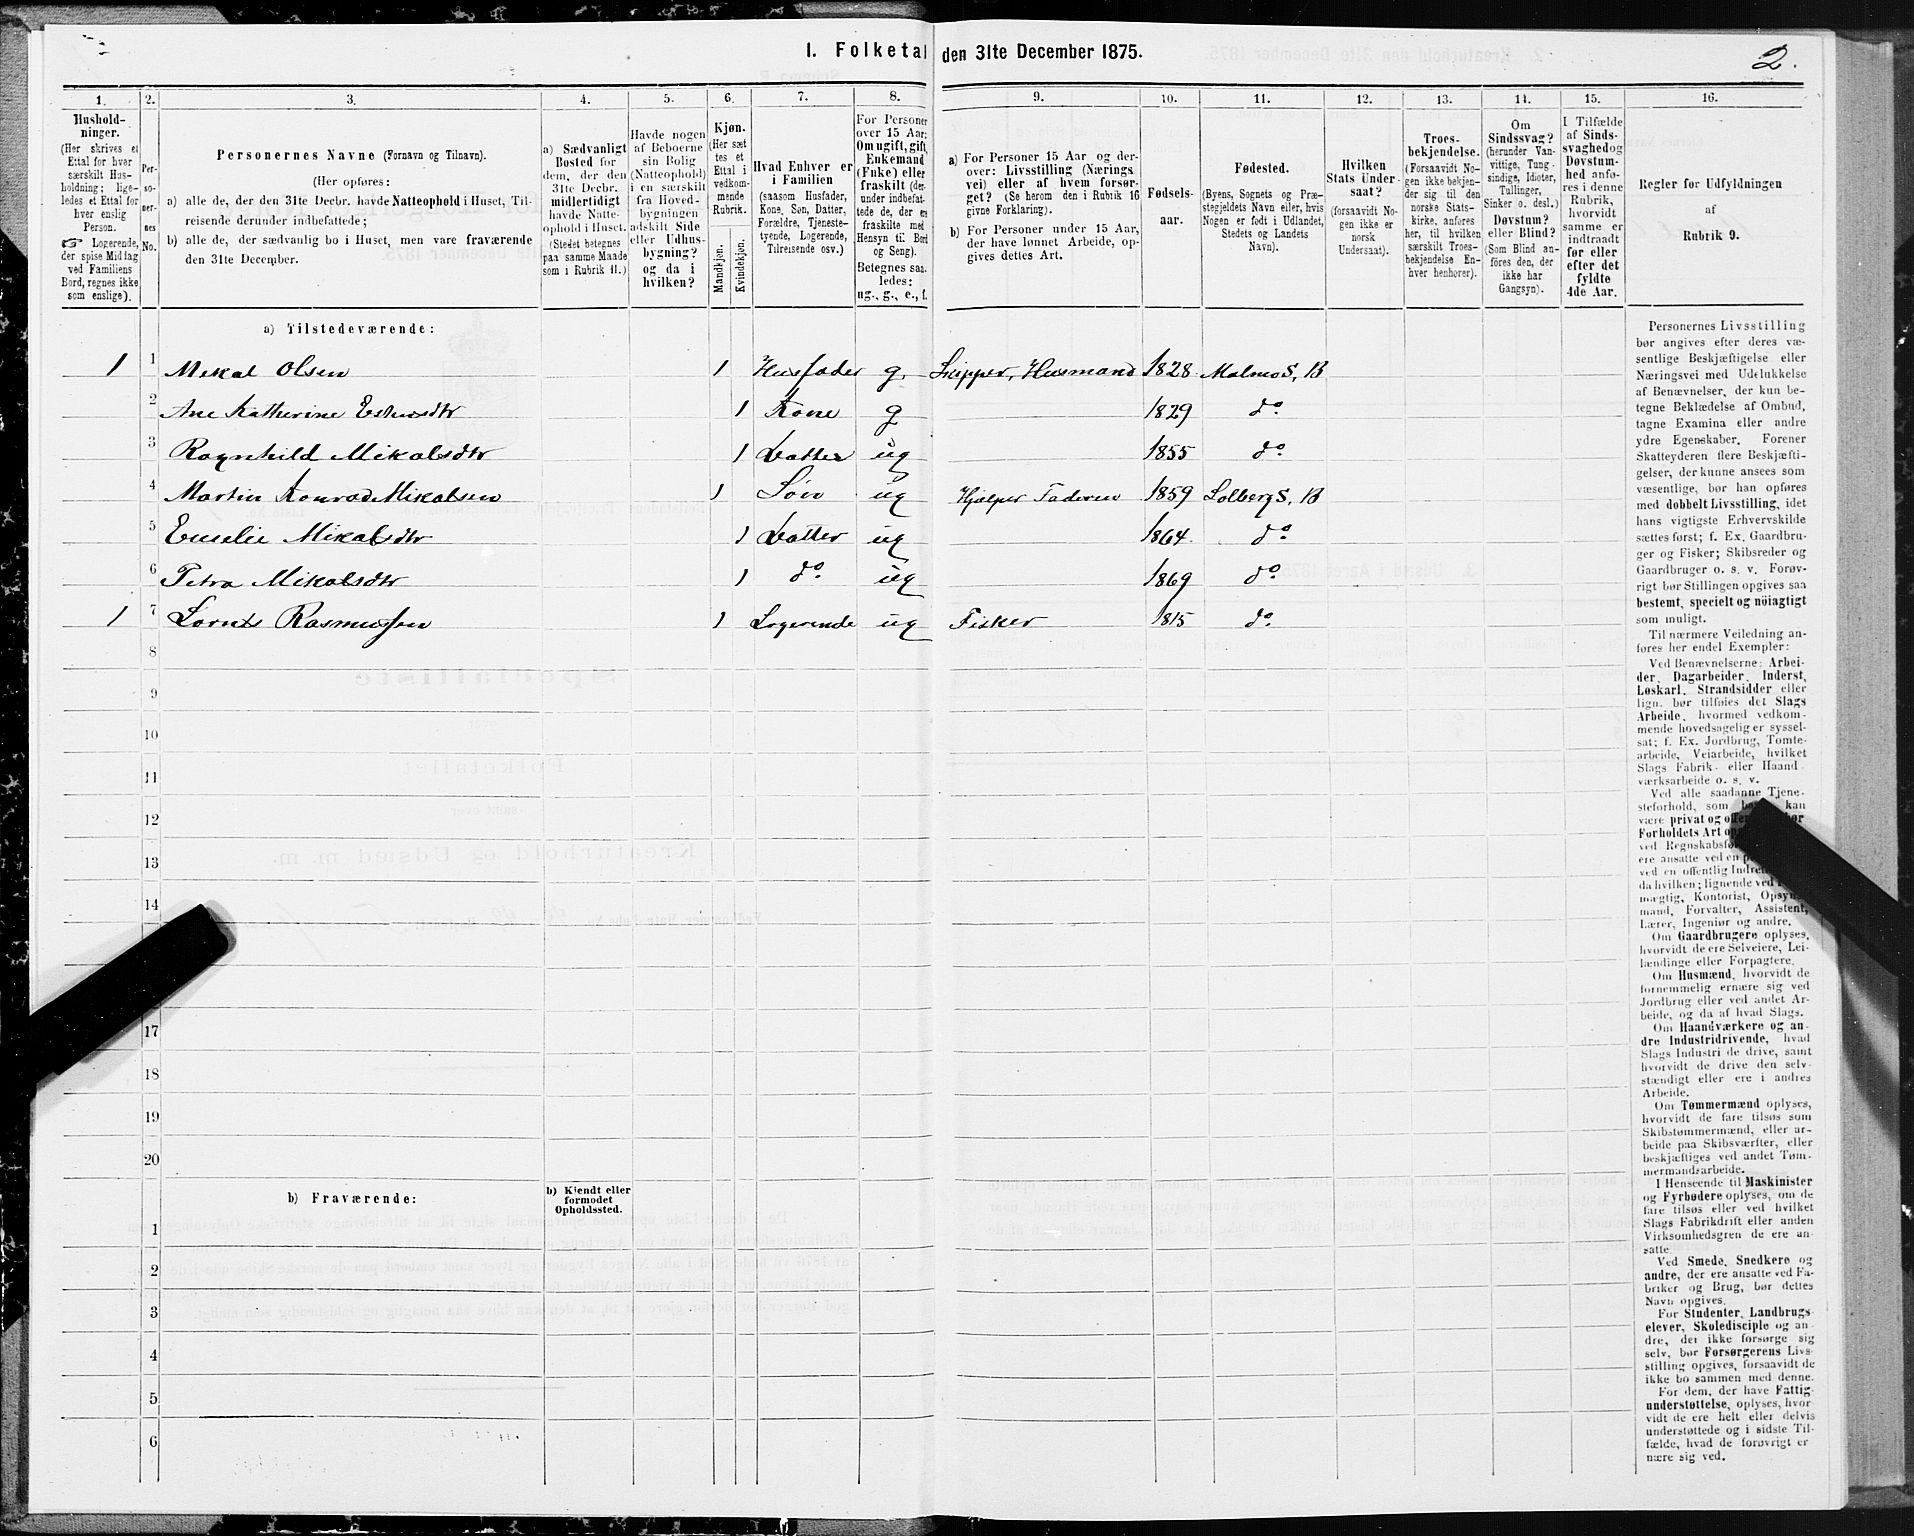 1. Folketal den 31te December 1875.
2.
1. 2. 3. 4. 5. 6. 7. 8. 9. 10. 11. 12. 13. 14. 15. 16.
Hushold-
ninger.
(Her skrives et
Ettal for hver
særskilt Hus-
holdning; lige-
ledes et Ettal for
hver enslig
Person.
☞ Logerende,
der spise Middag
ved Familiens
Bord, regnes ikke
som enslige).
Per-
so-
ner-
nes
No.
Personernes Navne (Fornavn og Tilnavn).
(Her opføres:
a) alle de, der den 31te Decbr. havde Natteophold i Huset, Til-
reisende derunder indbefattede;
b) alle de, der sædvanlig bo i Huset, men vare fraværende
den 31te December.
a) Sædvanligt
Bosted for
dem, der den
31te Decbr.
midlertidigt
havde Natte-
ophold i Huset.
(Stedet betegnes
paa samme Maade
som i Rubrik 11.)
Havde nogen
af Beboerne
sin Bolig
(Natteophold)
i en særskilt
fra Hoved-
bygningen
adskilt Side
eller Udhus-
bygning?
og da i
hvilken?
Kjøn.
(Her sæt
tes et
Ettal i
vedkom-
mende
Rubrik.
Mandkjøn.
Kvindekjøn.
Hvad Enhver er
i Familien
(saasom Husfader,
Kone, Søn, Datter,
Forældre, Tjeneste-
tyende, Logerende,
Tilreisende osv.)
For Personer
over 15 Aar;
Om ugift, gift,
Enkemand
(Enke) eller
fraskilt (der-
under indbefat-
tede de, der ere
fraskilte med
Hensyn til Bord
og Seng).
Betegnes saa-
ledes:
ug., g., e., f.
a) For Personer 15 Aar og der-
over: Livsstilling (Nærings
vei) eller af hvem forsør-
get? (Se herom den i Rubrik 16
givne Forklaring).
b) For Personer under 15 Aar,
der have lønnet Arbeide, op-
gives dettes Art.
Fødsels-
aar.
Fødested.
(Byens, Sognets og Præ-
stegjeldets Navn eller, hvis
Nogen er født i Udlandet,
Stedets og Landets
Navn).
Hvilken
Stats Under
saat?
(forsaavidt No-
gen ikke er
norsk
Undersaat).
Troes-
bekjendelse.
(Forsaavidt No-
gen ikke bekjen-
der sig til den
norske Stats-
kirke, anføres
her, til hvilken
særskilt Troes-
bekjendelse En-
hver henhører).
Om
Sindssvag?
(herunder Van-
vittige, Tung-
sindige, Idioter,
Tullinger,
Sinker o. desl.)
Døvstum?
eller Blind?
(Som Blind an-
føres den, der
ikke har
Gangsyn).
I Tilfælde
af Sinds-
svaghed og
Døvstum-
hed anfø-
res i denne
Rubrik,
hvorvidt
samme er
indtraadt
før eller
efter det
fyldte
4de Aar.
Regler for Udfyldningen
af
Rubrik 9.
a) Tilstedeværende:
1 1 Mikal Olsen 1 Husfader g. Skipper, Husmand 1828 Malmo S, B
2 Ane Katherine 1 Kone g 1829 do
3 Ragnhild Mikalsdtr 1 Datter ug 1855 do
4 Martin Konrad Mikalsen 1 Søn ug Hjælper Faderen 1859 Solberg S, B
5 Emelie Mikalsdtr 1 Datter ug 1864 do
6 Petra Mikalsdtr 1 do ug 1869 do
1 7 Lornts Rasmussen 1 Logerende ug Fisker 1815 do
8
9
10
11
12
13
14
17
18
19
20
b) Fraværende:
b) Kjendt eller
formodet
Opholdssted.
1
2
3
4
5
6
Personernes Livsstilling
bør angives efter deres væ-
sentlige Beskjæftigelse eller
Næringsvei med Udelukkelse
af Benævnelser, der kun be-
tegne Beklædelse af Ombud,
tagne Examina eller andre
ydre Egenskaber. Forener
Skatteyderen flere Beskjæfti-
gelser, der kunne ansees som
væsentlige, bør han opføres
med dobbelt Livsstilling, idet
hans vigtigste Erhvervskilde
sættes først; f. Ex. Gaardbru-
ger og Fisker; Skibsreder og
Gaardbruger o. s. v. Forøv-
rigt bør Stillingen opgives saa
bestemt, specielt og nöiagtigt
som muligt.
Til nærmere Veiledning an-
føres her endel Exempler:
Ved Benævnelserne: Arbei-
der, Dagarbeider, Inderst,
Løskarl, Strandsidder eller
lign. bør tilføies det Slags
Arbeide, hvormed vedkom-
mende hovedsagelig er syssel-
sat; f. Ex. Jordbrug, Tomte-
arbeide, Veiarbeide, hvilket
Slags Fabrik- eller Haand-
værksarbeide o. s. v.
Ved alle saadanne Tjene-
steforhold, som kan
være privat og
Forholdets Art
ved
ere ansatte ved en
ved en offentlig
da hvilken; lignende ved
mægtig, Kontorist,
mand, Forvalter, Assistent,
Lærer, Ingeniør og andre.
Om Gaardbrugere oplyses,
hvorvidt de ere Selveiere, Lei-
lændinge eller Forpagtere.
Om Husmænd, hvorvidt de
fornemmelig ernære sig ved
Jordbrug eller ved andet Ar-
beide, og da af hvad Slags.
Om Haandværkere og an-
dre Industridrivende, hvad
Slags Industri de drive, samt
hvorvidt de drive den selv-
stændigt eller ere i andres
Arbeide.
Om Tømmermænd oplyses,
hvorvidt de fare tilsøs som
Skibstømmermænd, eller ar-
beide paa Skibsværfter, eller
beskjæftiges ved andet Tøm-
mermandsarbeide.
I Henseende til Maskinister
og Fyrbødere oplyses, om de
fare tilsøs eller ved hvilket
Slags Fabrikdrift eller anden
Virksomhedsgren de ere an-
satte
Ved Smede, Snedkere og
andre, der ere ansatte ved Fa-
briker og Brug, bør dettes
Navn opgives.
For Studenter, Landbrugs-
elever, Skoledisciple og an-
dre, der ikke forsørge sig
selv, bør Forsørgerens Livs-
stilling opgives, forsaavidt de
ikke bo sammen med denne.
For dem, der have Fattig-
understøttelse, oplyses, hvor-
vidt de ere helt eller delvis
understøttede og i sidste Til-
fælde, hvad de forøvrigt er-
nære sig ved.